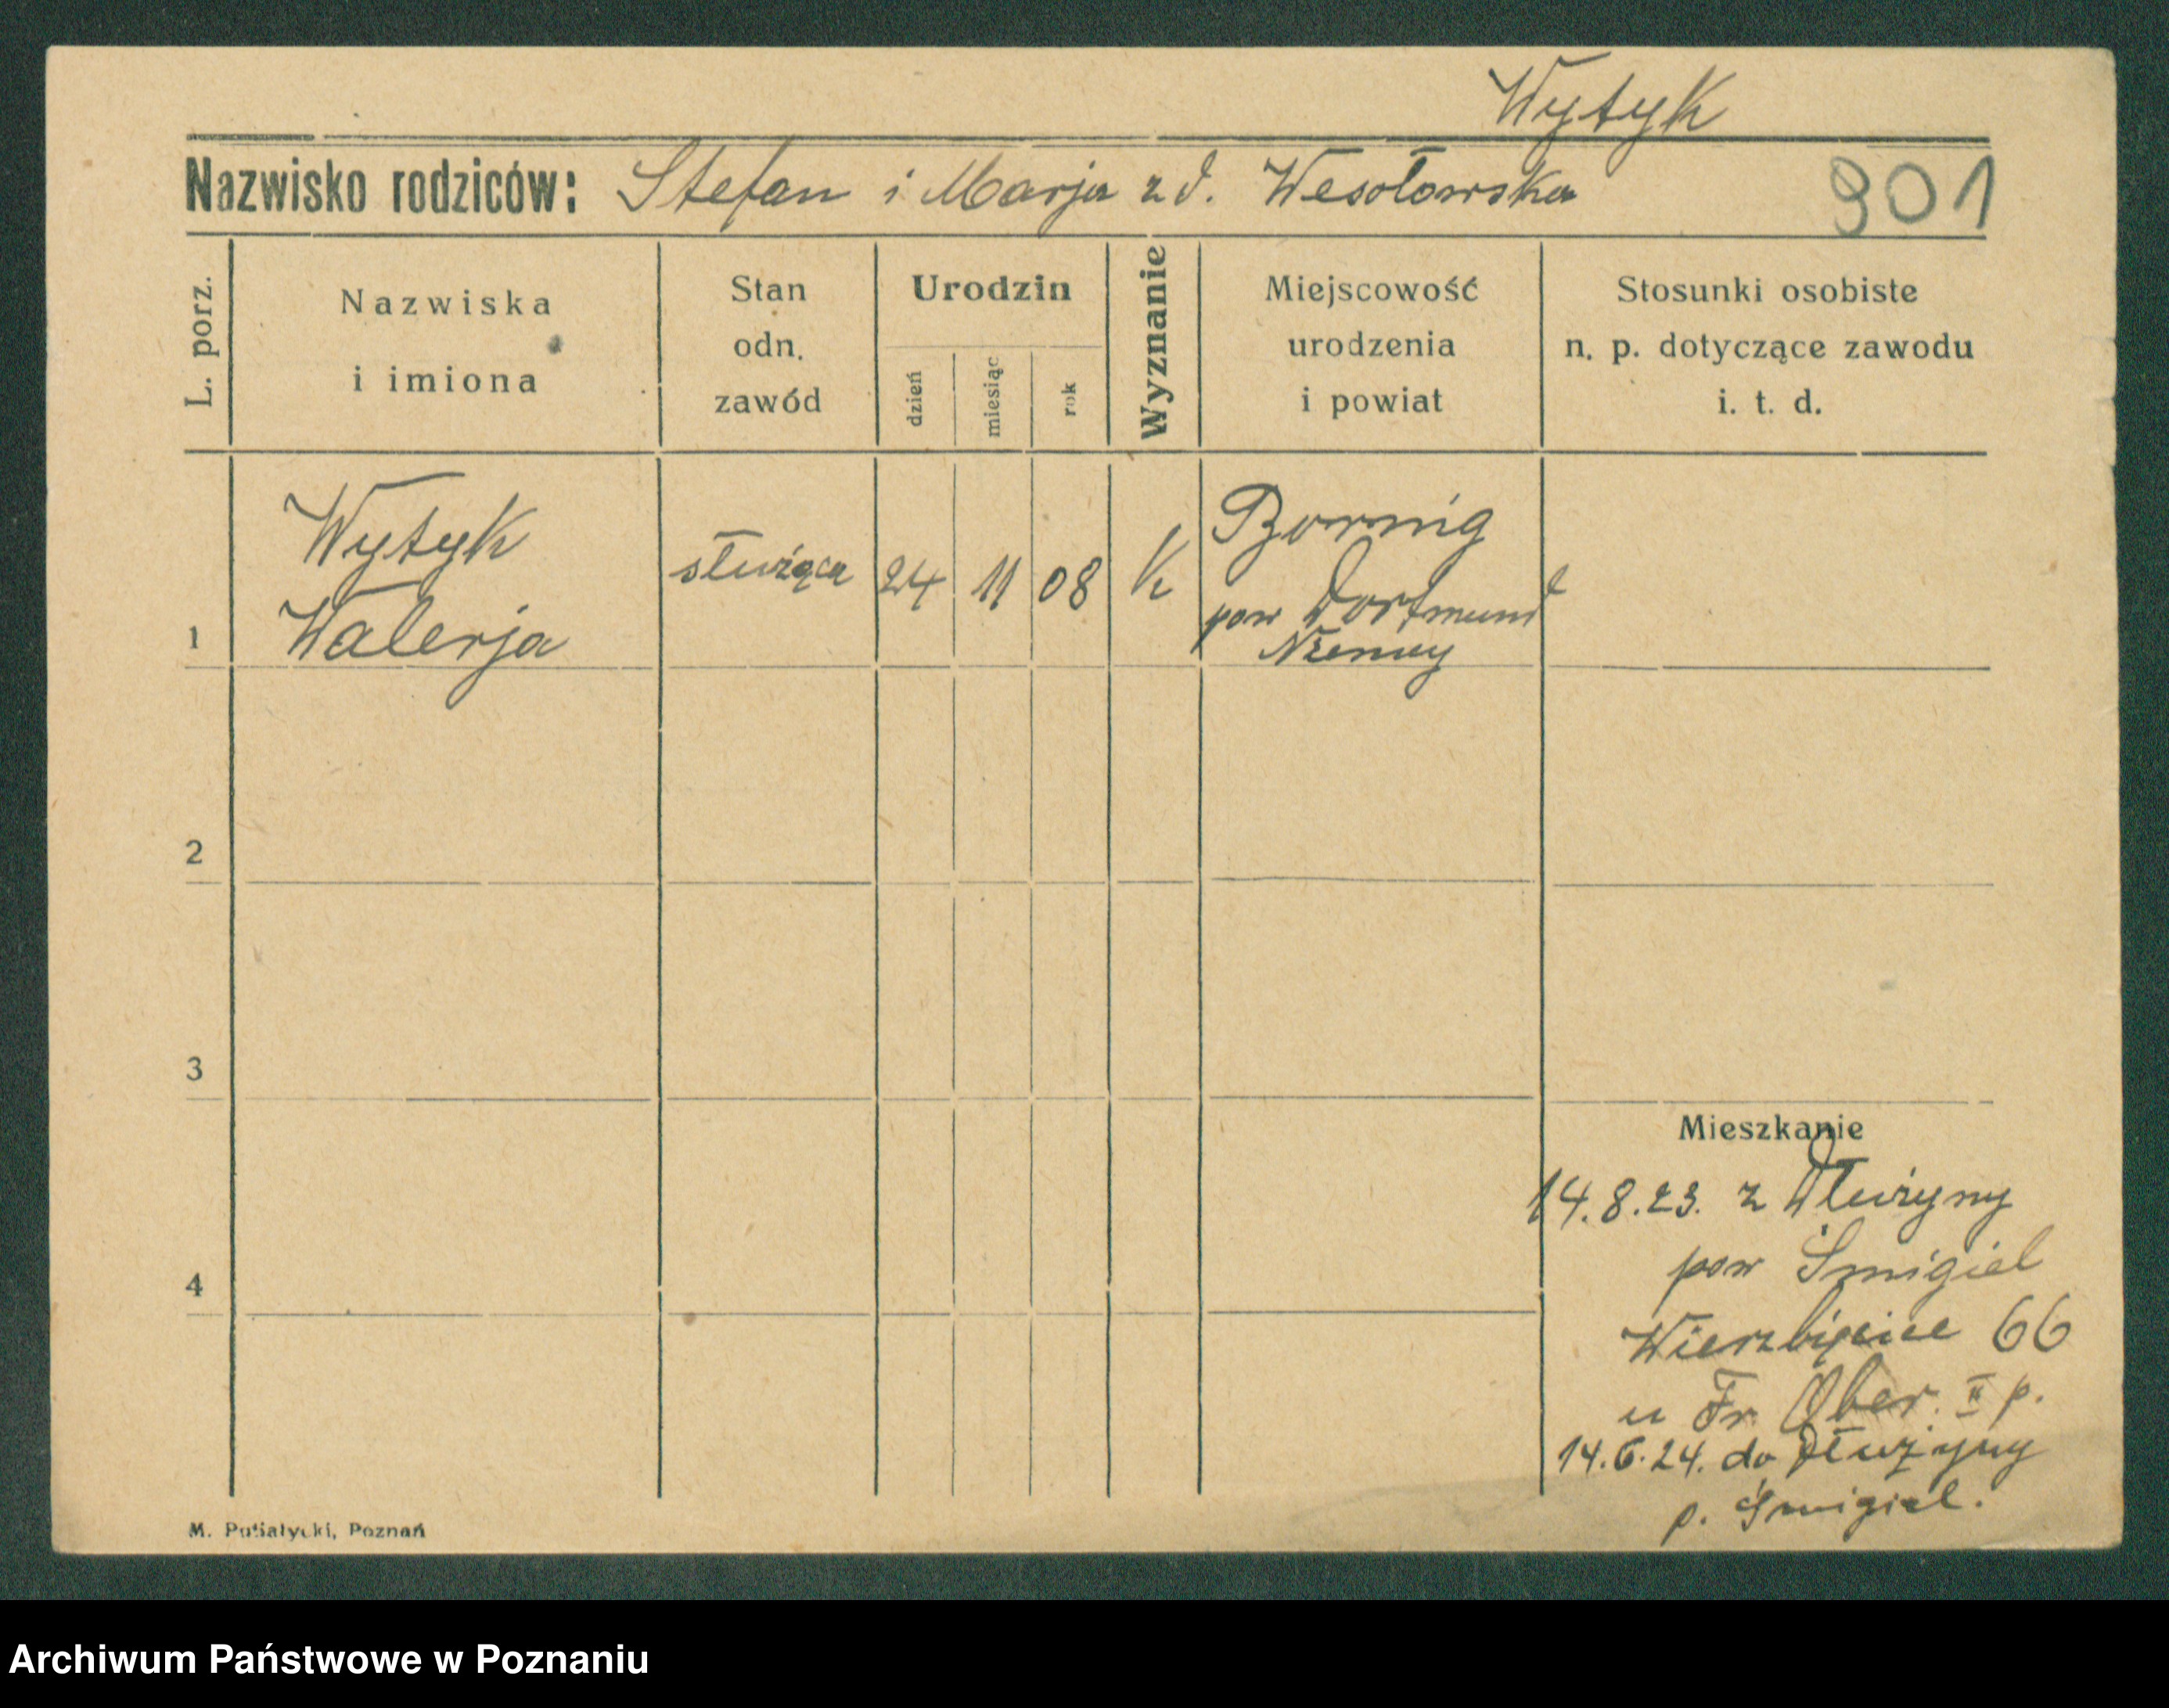 Wytyk
Nazwisko rodziców: Stefan i Marja z d. Wesołowska 901
L. porz.
Nazwiska
i imiona
Stan
odn.
zawód
Urodzin
dzień
miesiąc
rok
Wyznanie
Miejscowość
urodzenia
i powiat
Stosunki osobiste
n. p. dotyczące zawodu
i. t. d.
1
Wytyk
Walerja
służąca
24 11 08 K
Bornig
pow Dortmund
Niemcy
2
3
4
Mieszkanie
14.8.23. z Dłużyny
pow Śmigiel
Wierzbięcice 66
u Fr. Ober. II p.
14.6.24. do Dłużyny
p. Śmigiel.
M. Putiatycki, Poznań
Archiwum Państwowe w Poznaniu